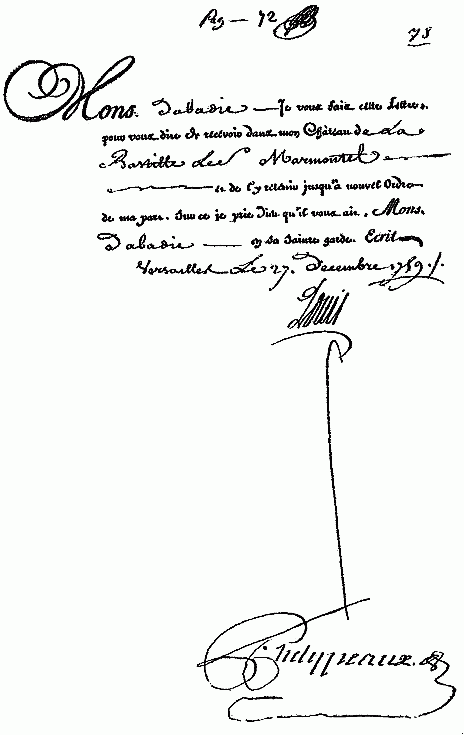 Pag — 72
78
Mons. Dabadie — Je vous fais cette Lettre.
pour vous dire de recevoir dans mon Château de La
Bastille Le Sr Marmontel
et de l'y retenir jusqu'à nouvel Ordre
de ma part. Sur ce je prie Dieu qu'il vous ait, Mons.
Dabadie — en sa sainte garde. Ecrit
Versailles Le 27. Decembre 1759./.
Louis
Phelypeaux